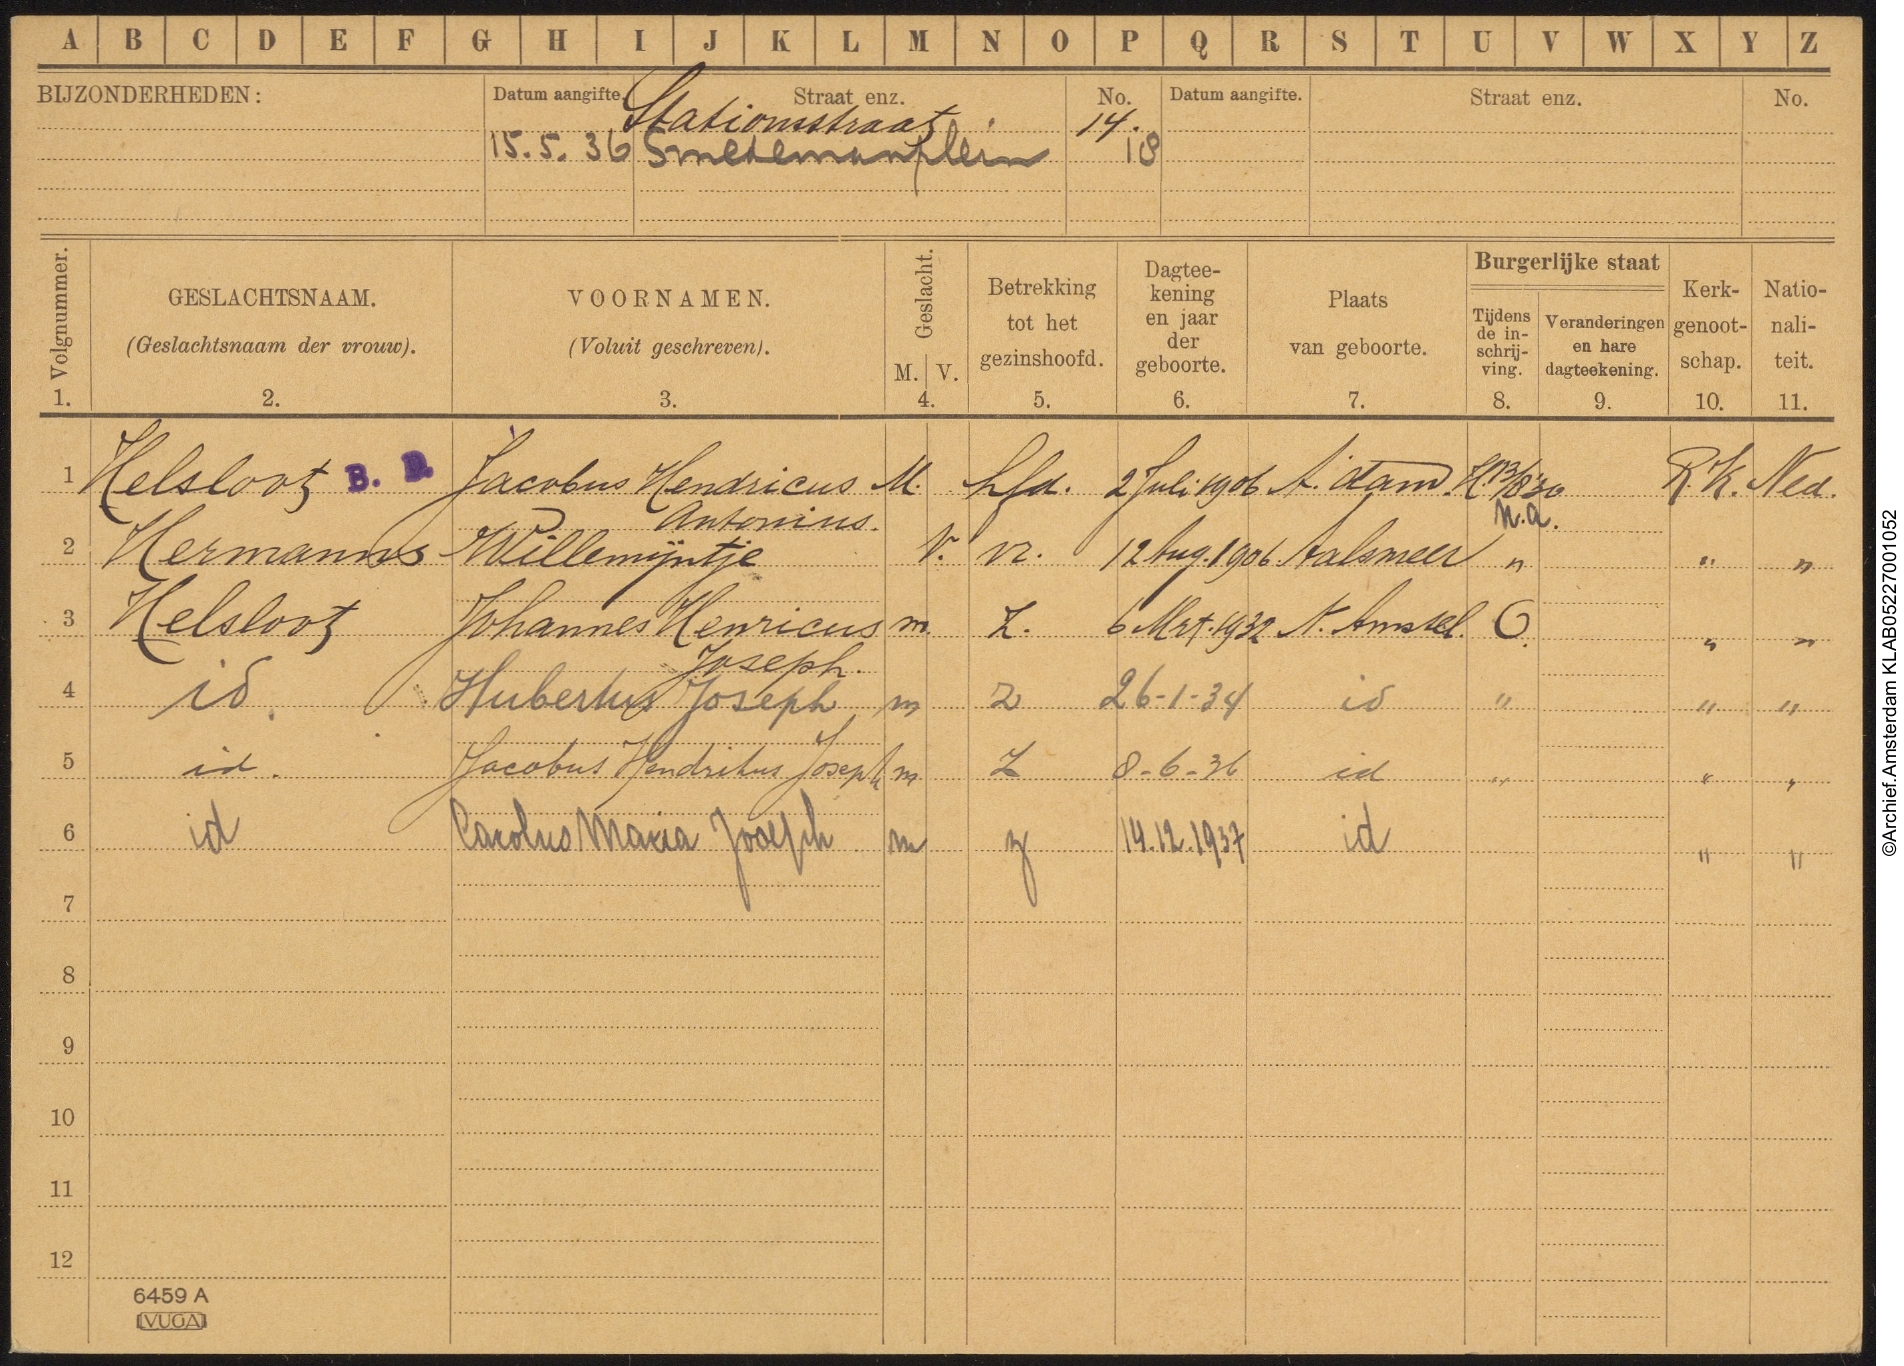 A B C D E F G H I J K L M N O P Q R S T U V W X Y Z
BIJZONDERHEDEN: Datum aangifte. Straat enz. No. Datum aangifte. Straat enz. No.
Stationsstraat 14.
15.5.36 Smedemanplein 18
Volgnummer. GESLACHTSNAAM. (Geslachtsnaam der vrouw). VOORNAMEN. (Voluit geschreven). Geslacht. M. V. Betrekking tot het gezinshoofd. Dagtee-kening en jaar der geboorte. Plaats van geboorte. Burgerlijke staat Tijdens de in-schrij-ving. Veranderingen en hare dagteekening. Kerk-genoot-schap. Natio-nali-teit.
1. 2. 3. 4. 5. 6. 7. 8. 9. 10. 11.
1 Helsloot B. D. Jacobus Hendricus M. hfd. 2 Juli 1906 A'dam. H 13/8'30 R.K. Ned.
Antonius. N.a.
2 Hermanns Willemijntje V. vr. 12 Aug. 1906. Aalsmeer " " "
3 Helsloot Johannes Henricus m. Z. 6 Mrt. 1932 N. Amstel. O. " "
Joseph.
4 id. Hubertus Joseph m Z 26-1-34 id " " "
5 id. Jacobus Hendrikus Joseph m Z 8-6-36 id " " "
6 id Carolus Maria Joseph m z 14.12.1937 id " "
7
8
9
10
11
12
6459 A
VUGA
©Archief.Amsterdam KLAB05227001052